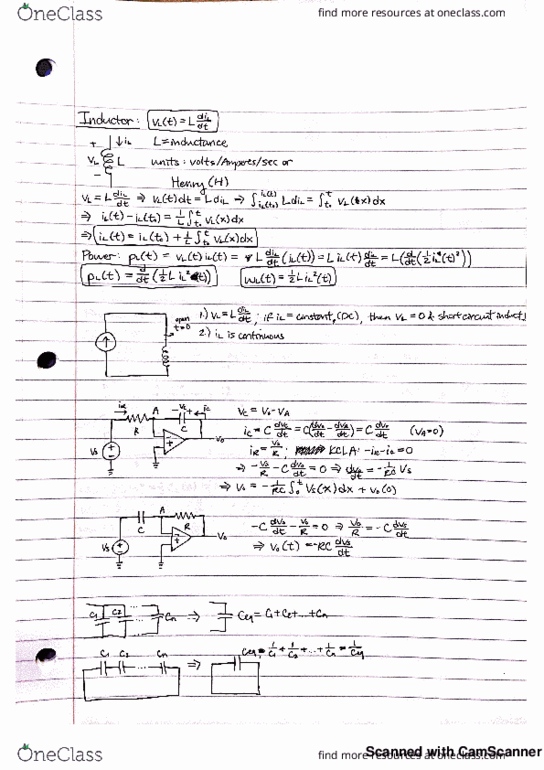 OneClass
find more resources at oneclass.com
Inductor: v_L(t) = L di_L/dt
+ ↓i_L L = inductance
V_L L units: volts/Amperes/sec or
− Henry (H)
V_L = L di_L/dt ⇒ V_L(t)dt = L di_L ⇒ ∫_{i_L(t_0)}^{i_L(t)} L di_L = ∫_{t_0}^{t} V_L(x)dx
⇒ i_L(t) - i_L(t_0) = 1/L ∫_{t_0}^{t} V_L(x)dx
⇒ i_L(t) = i_L(t_0) + 1/L ∫_{t_0}^{t} V_L(x)dx
Power: p_L(t) = V_L(t) i_L(t) = L di_L/dt (i_L(t)) = L i_L(t) di_L/dt = L(d/dt(1/2 i_L(t)²))
p_L(t) = d/dt(1/2 L i_L²(t)) w_L(t) = 1/2 L i_L²(t)
open t=0
1.) V_L = L di_L/dt, if i_L = constant, (DC), then V_L = 0 & short circuit induct
2.) i_L is continuous
i_R A − V_c + i_c
R C
V_s V_o
V_c = V_o - V_A
i_c = C dV_c/dt = C(dV_o/dt - dV_A/dt) = C dV_o/dt (V_A = 0)
i_R = V_s/R; KCL A: -i_R - i_c = 0
⇒ -V_s/R - C dV_o/dt = 0 ⇒ dV_o/dt = -1/RC V_s
⇒ V_o = -1/RC ∫_0^t V_s(x)dx + v_o(0)
A
C R
V_s V_o
-C dV_s/dt - V_o/R = 0 ⇒ V_o/R = -C dV_s/dt
⇒ v_o(t) = -RC dV_s/dt
C_1 C_2 ... C_n ⇒ C_eq = C_1 + C_2 + ... + C_n
C_1 C_2 ... C_n ⇒ C_eq = 1/C_1 + 1/C_2 + ... + 1/C_n = 1/C_eq
Scanned with CamScanner
OneClass
find more resources at oneclass.com